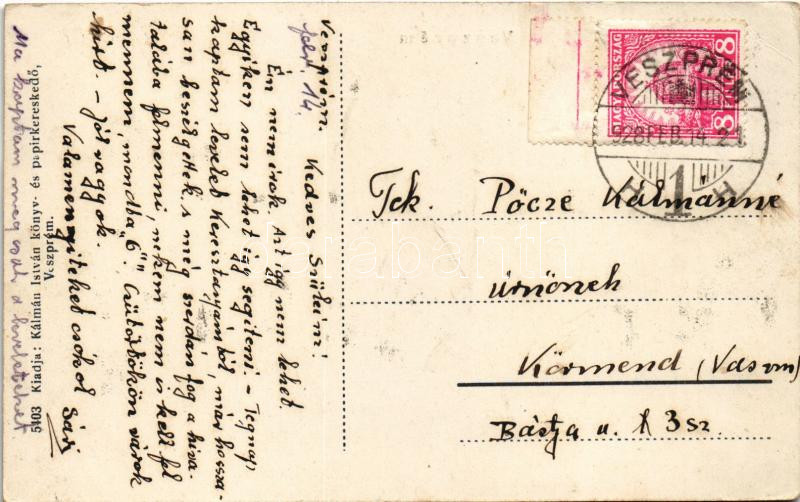 Veszprém.
febr. 14.
Kedves Szüleim!
Én nem írok. Azt így nem lehet.
Egyiken sem lehet így segíteni – Tegnap
kaptam levelet Keresztanyámtól, már hossza-
san beszélgettek, s még szerdán fog a hiva-
talába felmenni, nekem nem is kell fel
mennem, mondta "Ő". Csütörtökön várok
hírt. – Jól vagyok.
Valamennyiteket csókol Sári
Ma kaptam meg csak a leveleteket
5403 Kiadja: Kálmán István könyv- és papirkereskedő,
Veszprém.
Veszprém
MAGYARORSZÁG
8 8
VESZPRÉM
928 FEB. 14
1
H H
Tek. Pőcze Kálmánné
úrnőnek
Körmend (Vasvm)
Bástya u. 3 sz.
darabanth